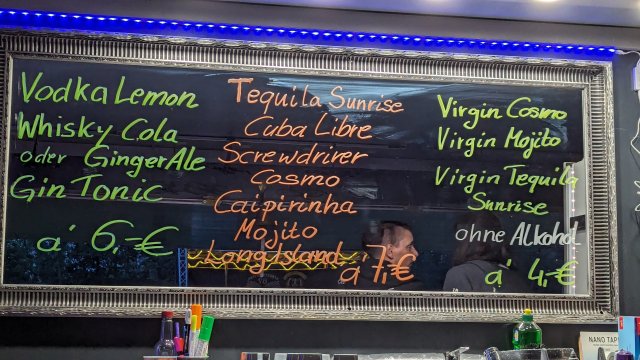 Vodka Lemon
Whisky Cola
oder Ginger Ale
Gin Tonic
a' 6,-€
Tequila Sunrise
Cuba Libre
Screwdriver
Cosmo
Caipirinha
Mojito
Long Island
a' 7,-€
Virgin Cosmo
Virgin Mojito
Virgin Tequila
Sunrise
ohne Alkohol
a' 4,-€
NANO TAP